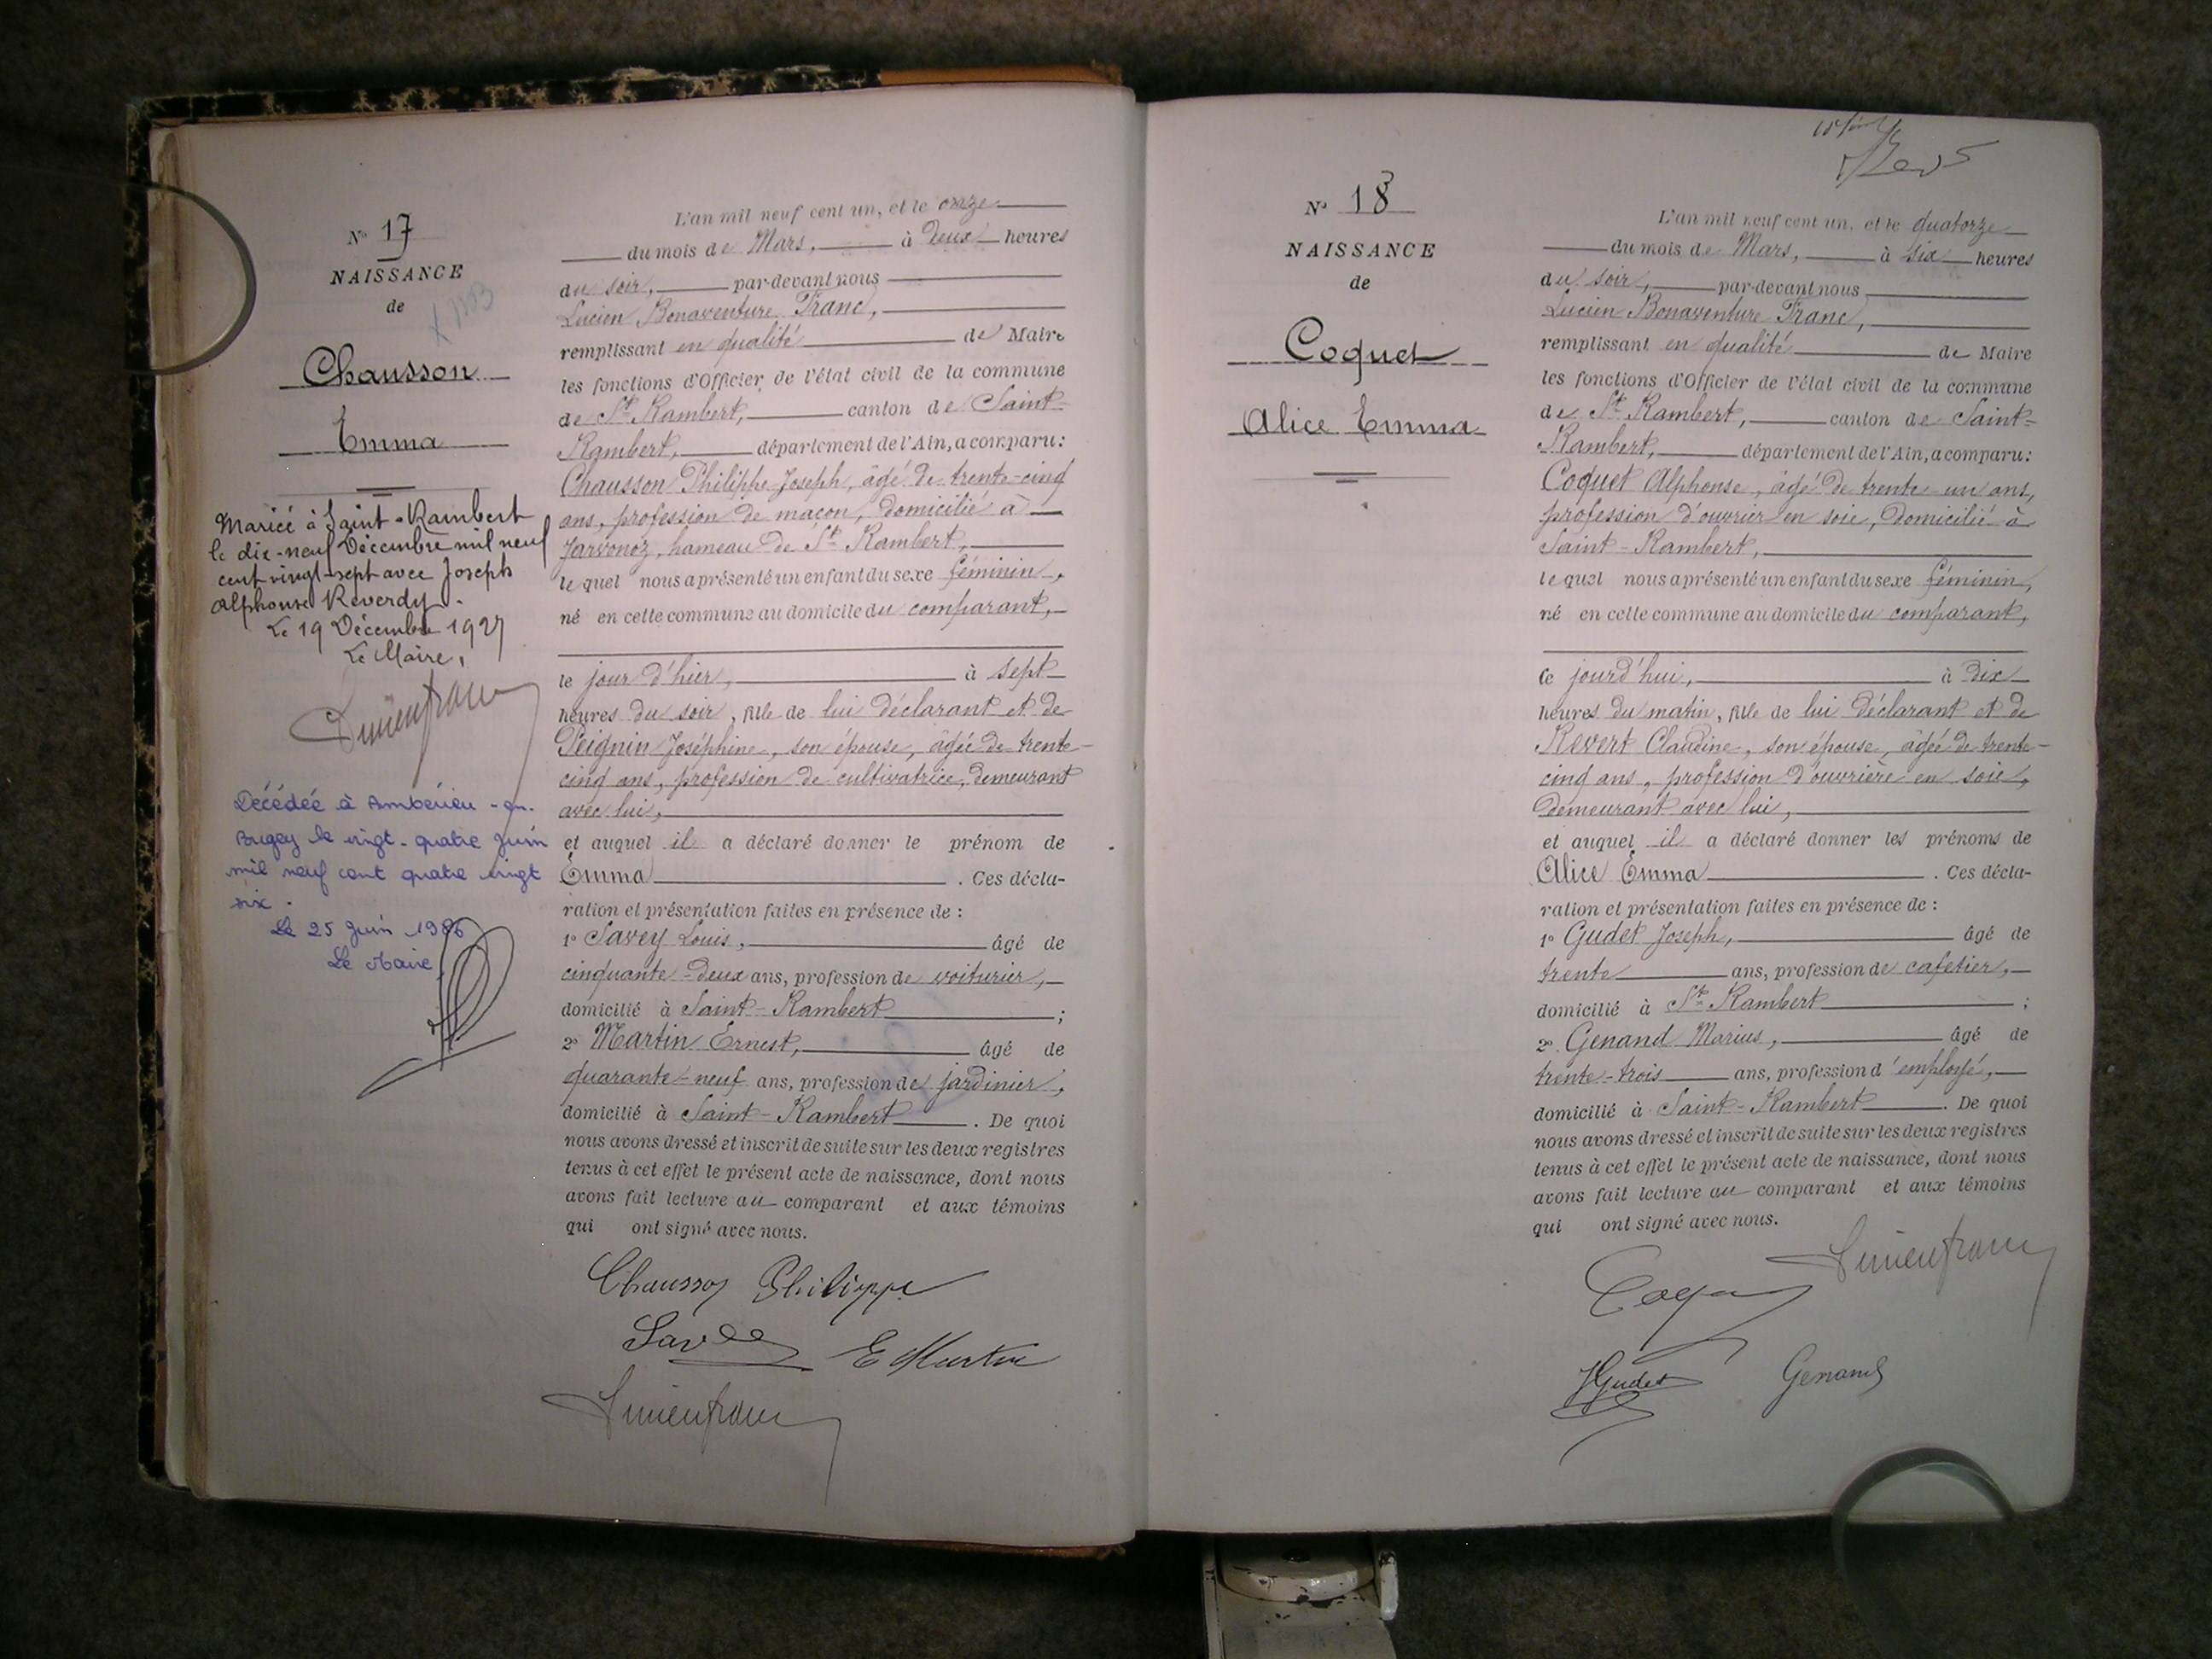 N° 17
NAISSANCE
de
Chausson
Emma
Mariée à Saint-Rambert
le dix-neuf Décembre mil neuf
cent vingt-sept avec Joseph
Alphonse Reverdy.
Le 19 Décembre 1927
Le Maire,
Décédée à Ambérieu-en-
Bugey le vingt-quatre Juin
mil neuf cent quatre vingt
six.
Le 25 Juin 1986
Le Maire
L'an mil neuf cent un, et le onze
du mois de Mars, à deux heures
du soir, par-devant nous
Lucien Bonaventure Franc,
remplissant en qualité de Maire
les fonctions d'Officier de l'état civil de la commune
de St Rambert, canton de Saint-
Rambert, département de l'Ain, a comparu:
Chausson Philippe-Joseph, âgé de trente-cinq
ans, profession de maçon, domicilié à
Javornoz, hameau de St Rambert,
lequel nous a présenté un enfant du sexe féminin,
né en cette commune au domicile du comparant,
le jour d'hier, à sept
heures du soir, fille de lui déclarant et de
Peignin Joséphine, son épouse, âgée de trente-
cinq ans, profession de cultivatrice, demeurant
avec lui,
et auquel il a déclaré donner le prénom de
Emma. Ces décla-
ration et présentation faites en présence de :
1° Savey Louis, âgé de
cinquante-deux ans, profession de voiturier,
domicilié à Saint-Rambert ;
2° Martin Ernest, âgé de
quarante-neuf ans, profession de jardinier,
domicilié à Saint-Rambert. De quoi
nous avons dressé et inscrit de suite sur les deux registres
tenus à cet effet le présent acte de naissance, dont nous
avons fait lecture au comparant et aux témoins
qui ont signé avec nous.
Chausson Philippe
Savey E Martin
Lucien franc
N° 18
NAISSANCE
de
Coquet
Alice Emma
L'an mil neuf cent un, et le quatorze
du mois de Mars, à six heures
du soir, par-devant nous
Lucien Bonaventure Franc,
remplissant en qualité de Maire
les fonctions d'Officier de l'état civil de la commune
de St Rambert, canton de Saint-
Rambert, département de l'Ain, a comparu:
Coquet Alphonse, âgé de trente-un ans,
profession d'ouvrier en soie, domicilié à
Saint-Rambert,
lequel nous a présenté un enfant du sexe féminin,
né en cette commune au domicile du comparant,
ce jourd'hui, à dix
heures du matin, fille de lui déclarant et de
Revert Claudine, son épouse, âgée de trente-
cinq ans, profession d'ouvrière en soie,
demeurant avec lui,
et auquel il a déclaré donner les prénoms de
Alice Emma. Ces décla-
ration et présentation faites en présence de :
1° Gudet Joseph, âgé de
trente ans, profession de cafetier,
domicilié à St Rambert ;
2° Genand Marius, âgé de
trente-trois ans, profession d'employé,
domicilié à Saint-Rambert. De quoi
nous avons dressé et inscrit de suite sur les deux registres
tenus à cet effet le présent acte de naissance, dont nous
avons fait lecture au comparant et aux témoins
qui ont signé avec nous.
Lucien franc
Coquet
JGudet Genand